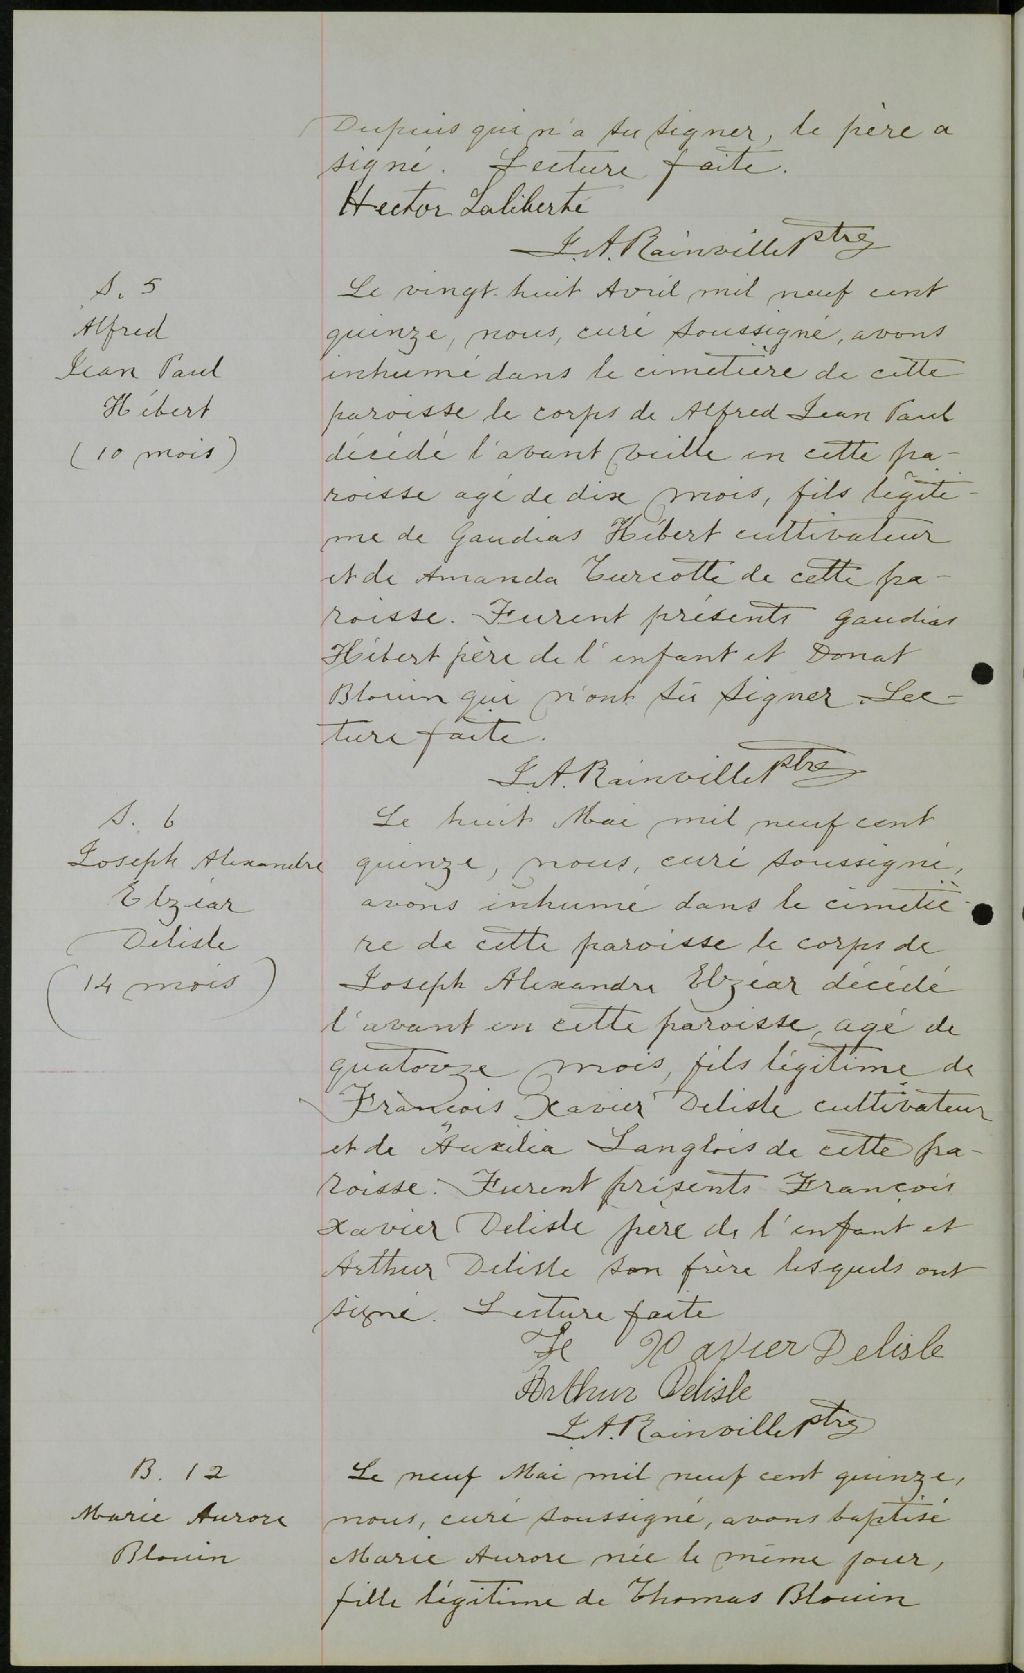 Dupuis qui n'a su signer, le père a
signé. Lecture faite.
Hector Laliberté
J. A. Rainville Ptre
S. 5
Alfred
Jean Paul
Hébert
(10 mois)
Le vingt-huit Avril mil neuf cent
quinze, nous, curé soussigné, avons
inhumé dans le cimetière de cette
paroisse le corps de Alfred Jean Paul
décédé l'avant veille en cette pa-
roisse agé de dix mois, fils légiti-
me de Gaudias Hébert cultivateur
et de Amanda Turcotte de cette pa-
roisse. Furent présents Gaudias
Hébert père de l'enfant et Donat
Blouin qui n'ont sû signer. Lec-
ture faite.
J. A. Rainville Ptre
S. 6
Joseph Alexandre
Elzéar
Delisle
(14 mois)
Le huit Mai mil neuf cent
quinze, nous, curé soussigné,
avons inhumé dans le cimetiè-
re de cette paroisse le corps de
Joseph Alexandre Elzéar décédé
l'avant en cette paroisse, agé de
quatorze mois, fils légitime de
François Xavier Delisle cultivateur
et de Auxilia Langlois de cette pa-
roisse. Furent présents François
Xavier Delisle père de l'enfant et
Arthur Delisle son frère lesquels ont
signé. Lecture faite
Xavier Delisle
Arthur Delisle
J. A. Rainville Ptre
B. 12
Marie Aurore
Blouin
Le neuf Mai mil neuf cent quinze,
nous, curé soussigné, avons baptisé
Marie Aurore née le même jour,
fille légitime de Thomas Blouin